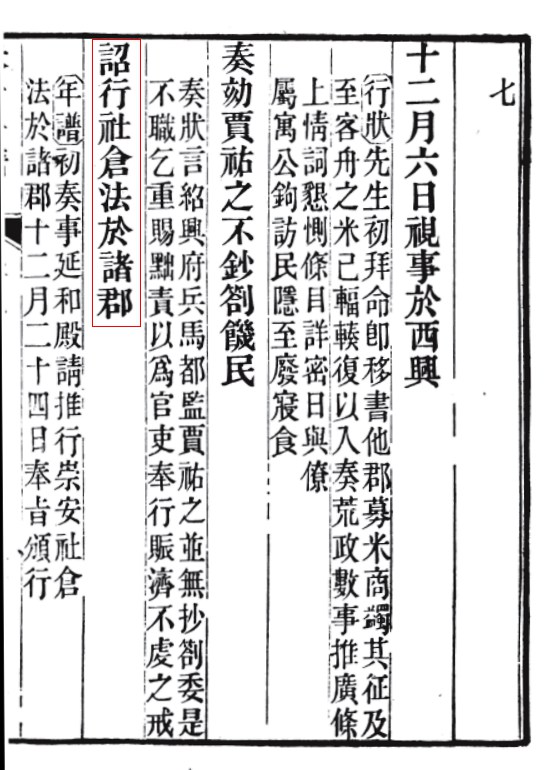 七
十二月六日視事於西興
行狀先生初拜命卽移書他郡募米商蠲其征及
至客舟之米已輻輳復以入奏荒政數事推廣條
上情詞懇惻條目詳密日與僚
屬寓公鉤訪民隱至廢寢食
奏劾賈祐之不鈔劄饑民
奏狀言紹興府兵馬都監賈祐之並無抄劄委是
不職乞重賜黜責以爲官吏奉行賑濟不虔之戒
詔行社倉法於諸郡
年譜初奏事延和殿請推行崇安社倉
法於諸郡十二月二十四日奉旨頒行